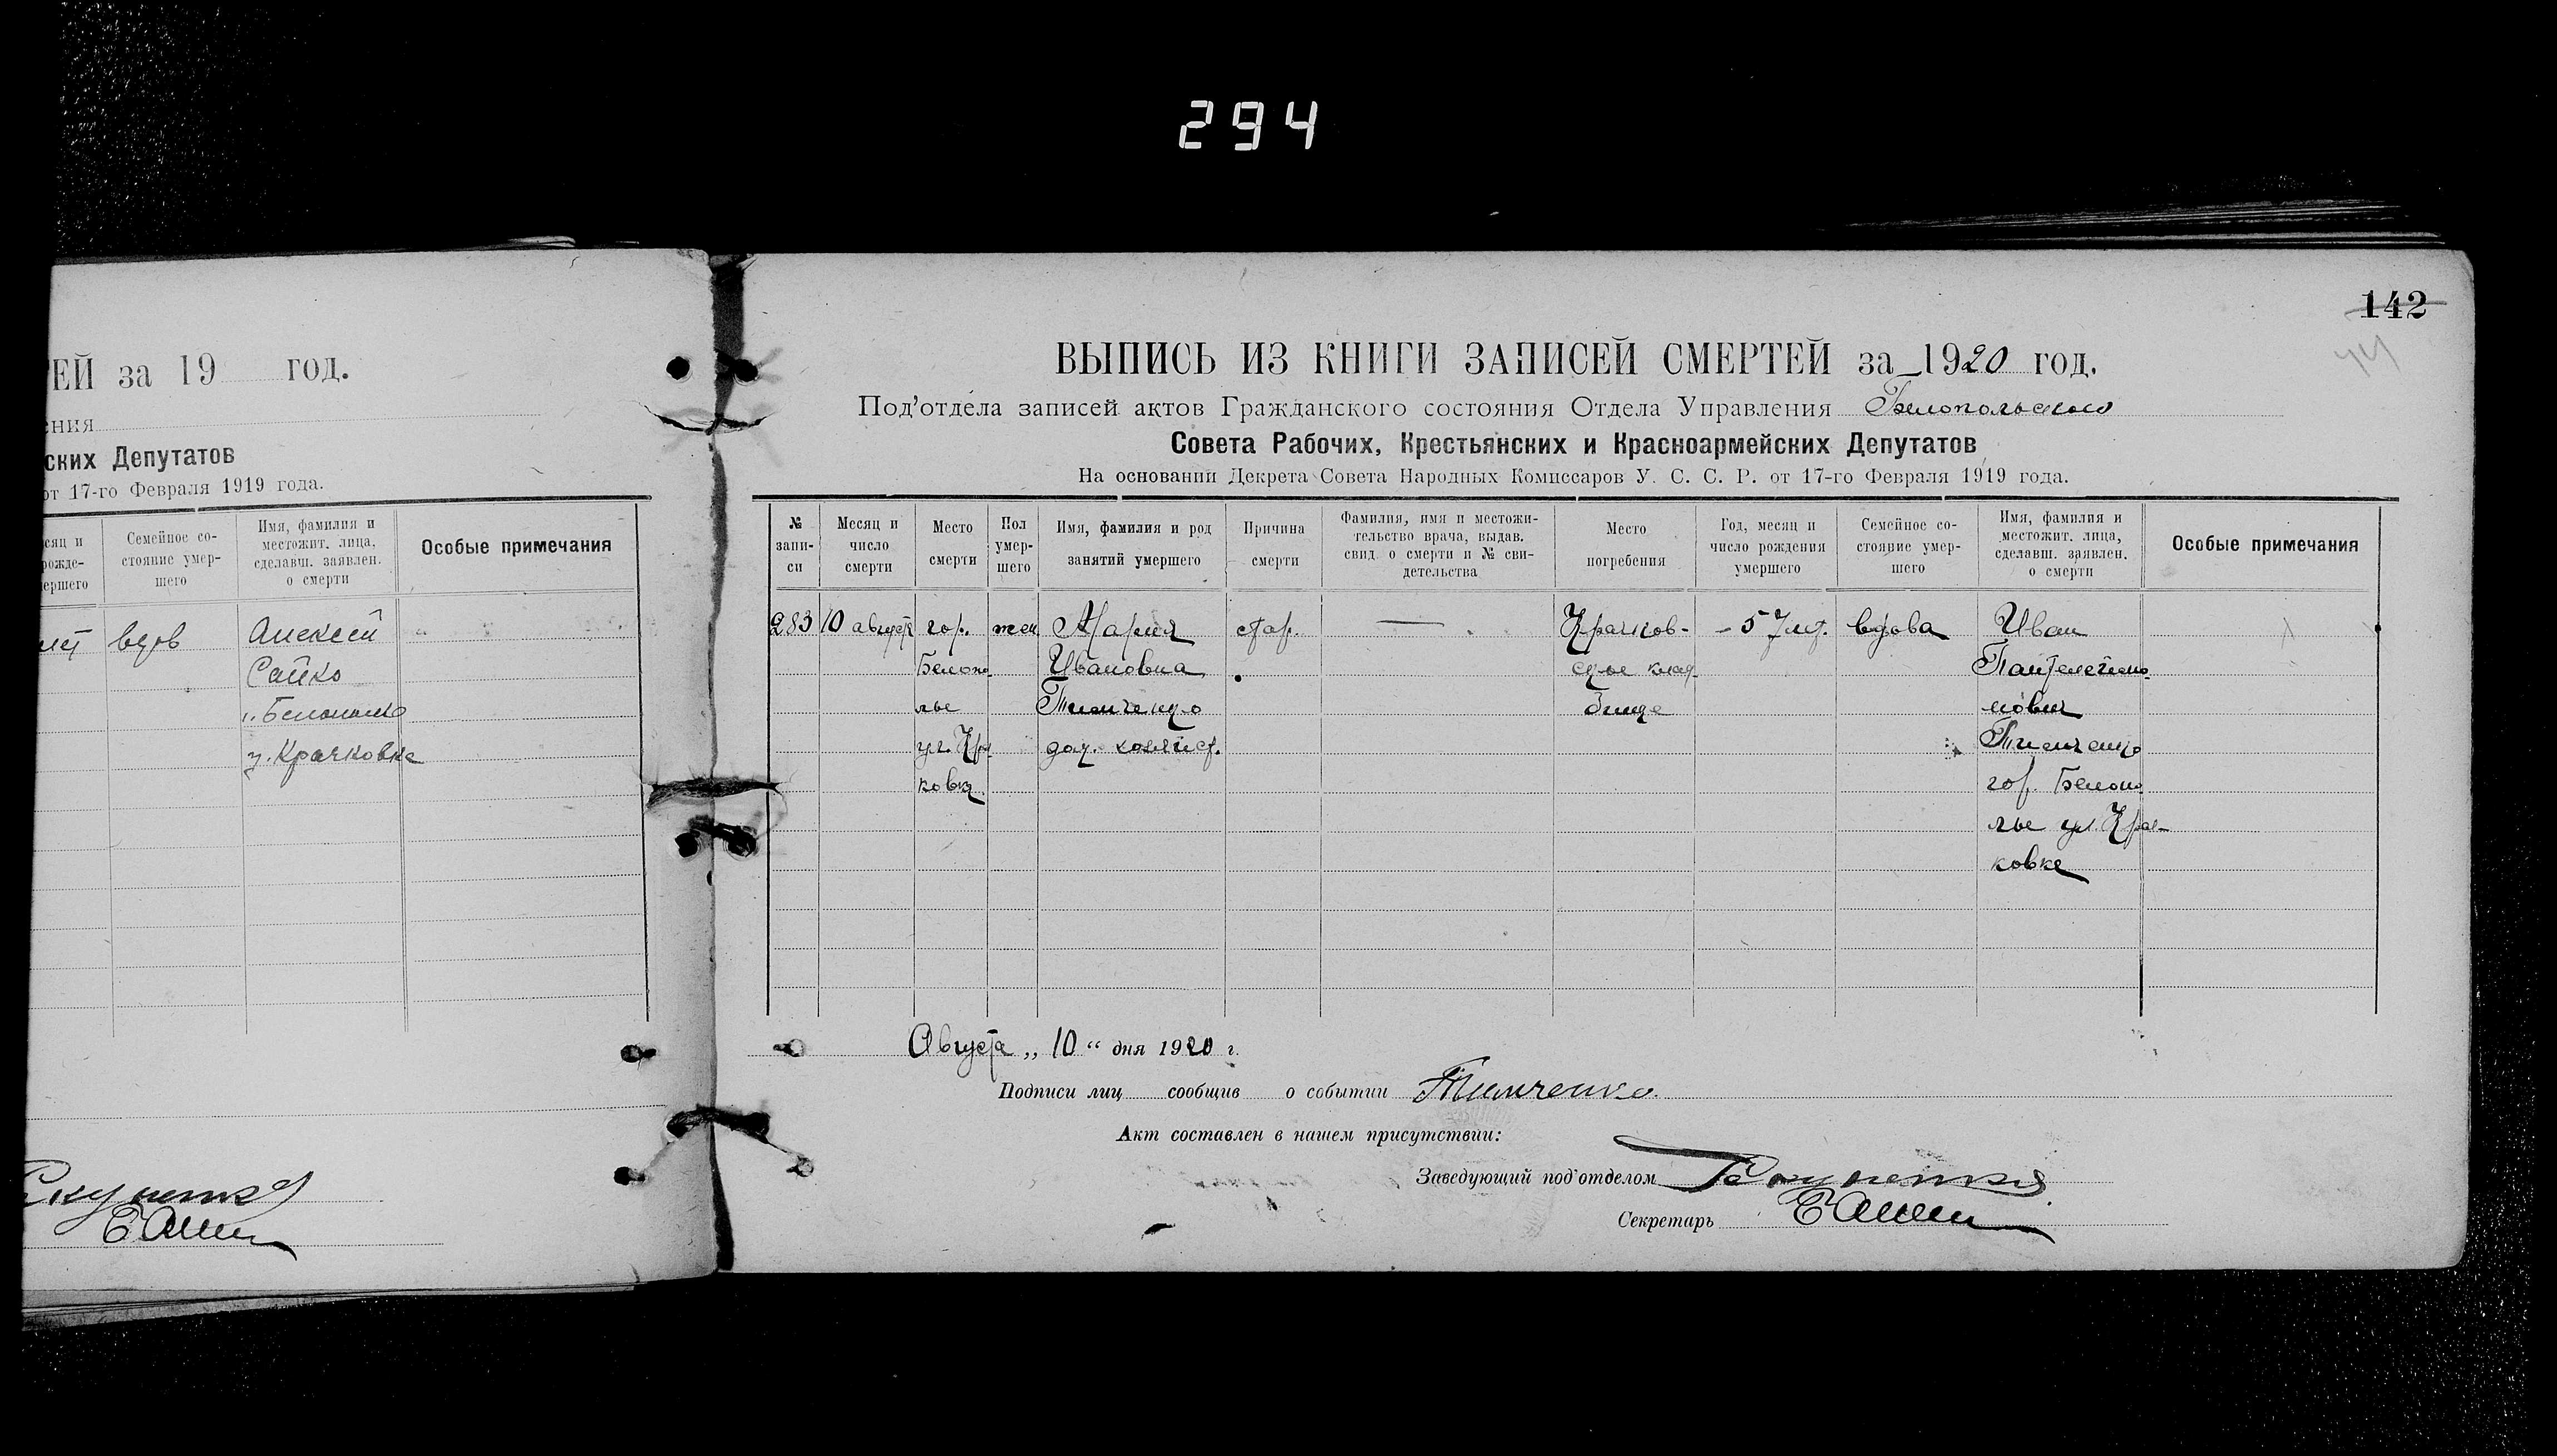 294
ЕЙ за 19 год.
ения
ских Депутатов
от 17-го Февраля 1919 года.
Семейное со-
стояние умер-
шего
Имя, фамилия и
местожит. лица,
сделавш. заявлен.
о смерти
Особые примечания
лет вдов Алексей
Сайко
г. Белополье
у. Крачковке
142
ВЫПИСЬ ИЗ КНИГИ ЗАПИСЕЙ СМЕРТЕЙ за 1920 год.
Под'отдела записей актов Гражданского состояния Отдела Управления Белопольского
Совета Рабочих, Крестьянских и Красноармейских Депутатов
На основании Декрета Совета Народных Комиссаров У. С. С. Р. от 17-го Февраля 1919 года.
№
запи-
си
Месяц и
число
смерти
Место
смерти
Пол
умер-
шего
Имя, фамилия и род
занятий умершего
Причина
смерти
Фамилия, имя и местожи-
тельство врача, выдав.
свид. о смерти и № сви-
детельства
Место
погребения
Год, месяц и
число рождения
умершего
Семейное со-
стояние умер-
шего
Имя, фамилия и
местожит. лица,
сделавш. заявлен.
о смерти
Особые примечания
283 10 август гор. жен Мария стар. — Крачков- 57 лет. вдова Иван
Белопо Ивановна ское клад- Пантелеймо
лье Тимченко бище нович
ул. Кра дом. хозяйст. Тимченко
ковка гор. Белопо
лье ул. Крач-
ковке
Августа „ 10 “ дня 1920 г.
Подписи лиц сообщив о событии Тимченко.
Акт составлен в нашем присутствии:
Заведующий под'отделом
Секретарь